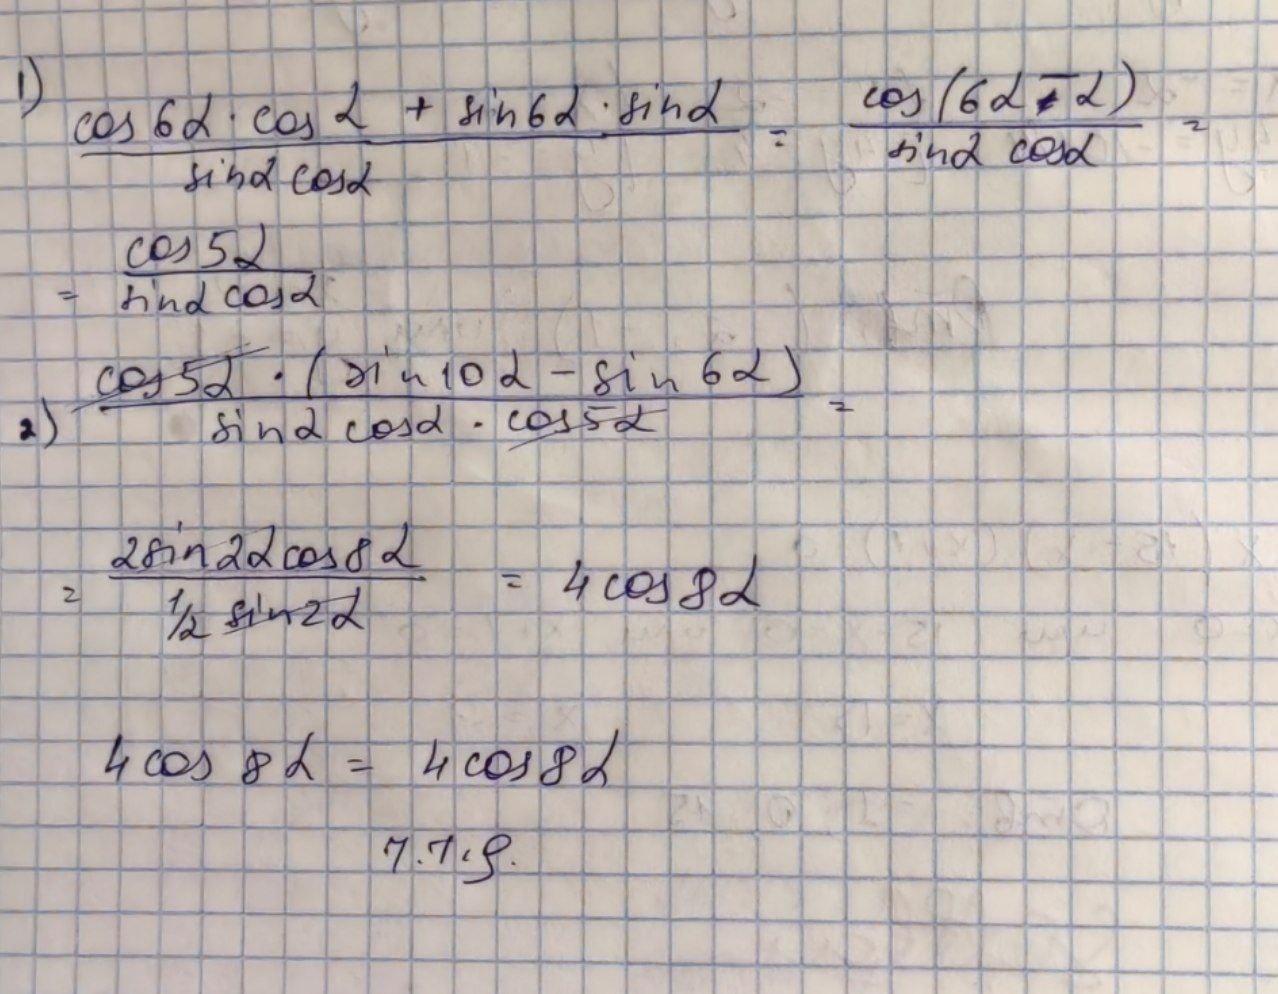 1) (cos6α · cosα + sin6α · sinα) / (sinα cosα) = cos(6α - α) / (sinα cosα) =
= cos5α / (sinα cosα)
2) cos5α · (sin10α - sin6α) / (sinα cosα · cos5α) =
= 2sin2αcos8α / (1/2 sin2α) = 4cos8α
4cos8α = 4cos8α
ч.т.д.